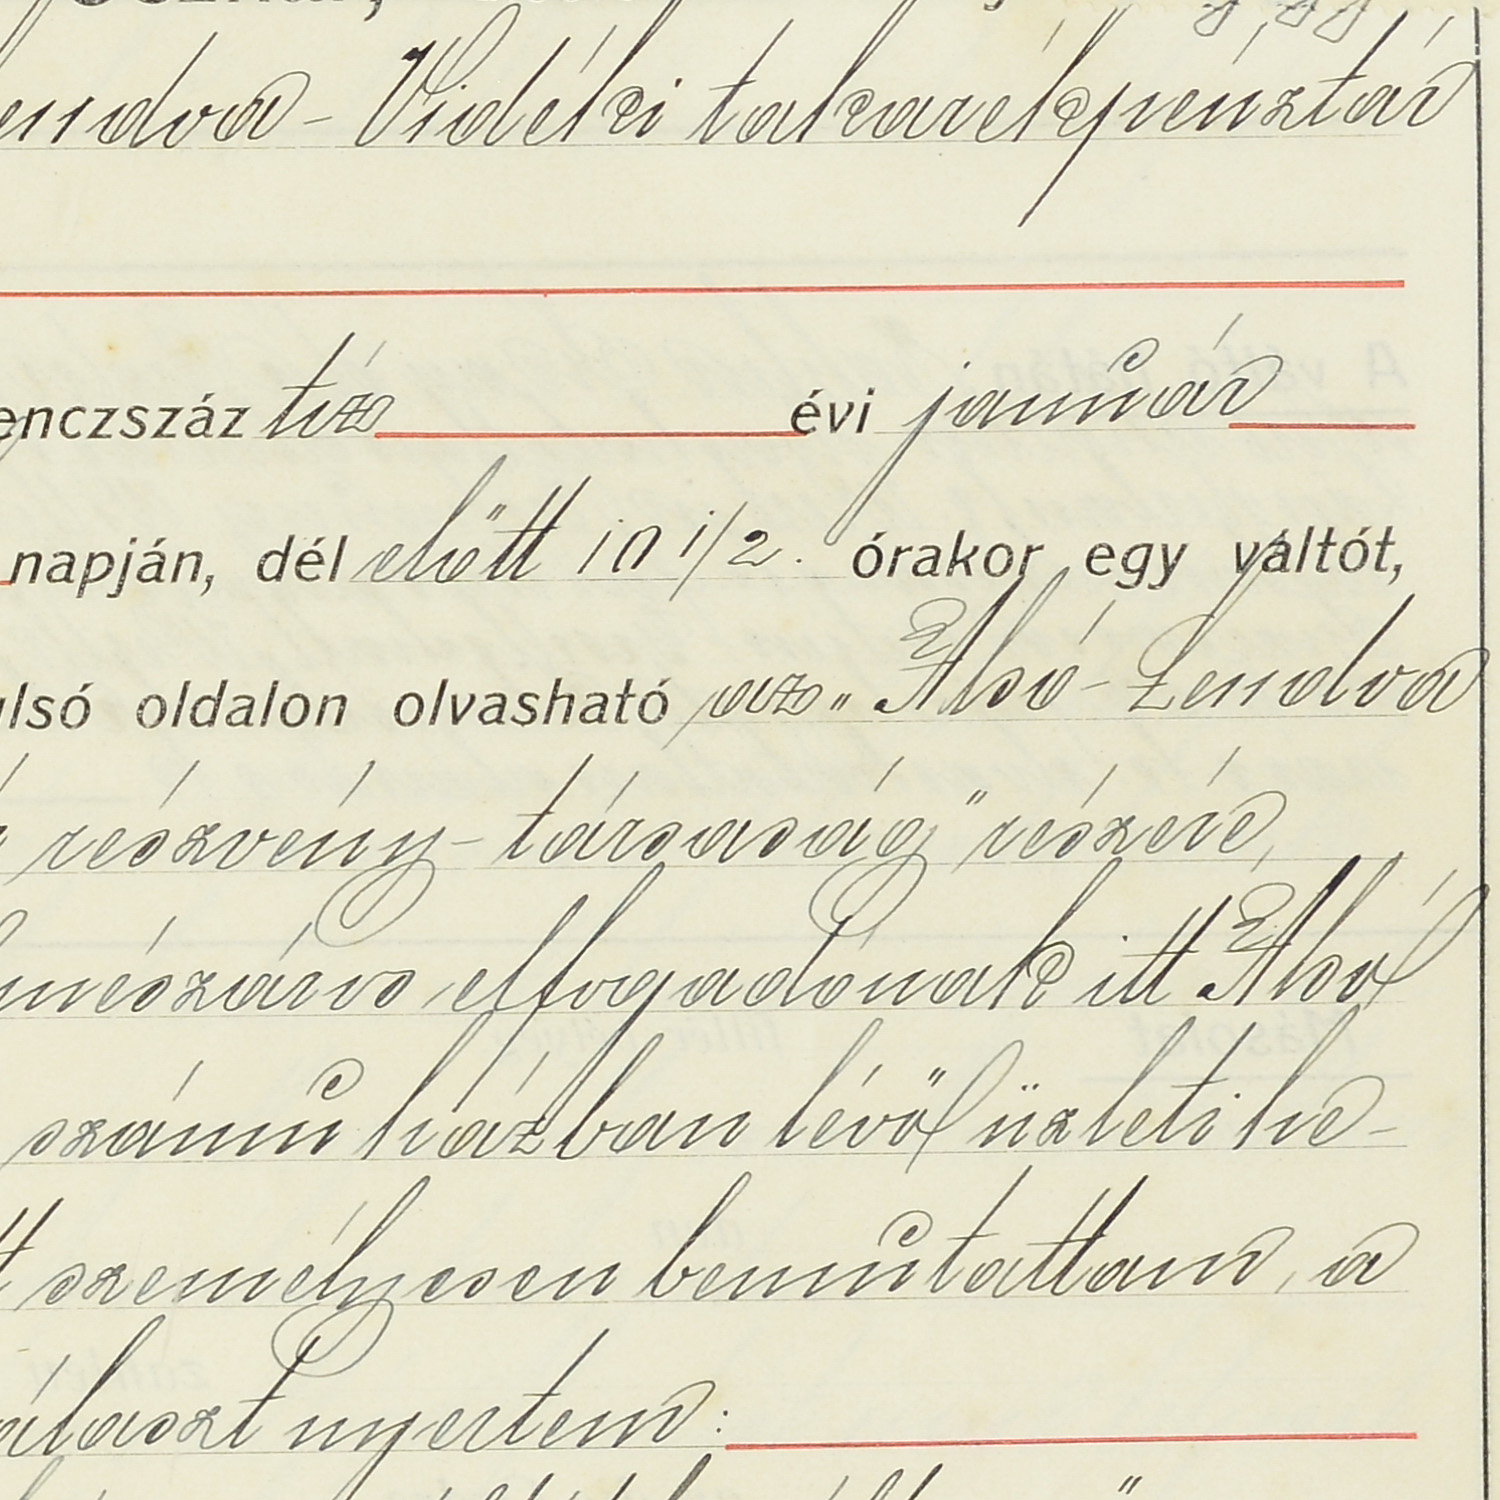 endva - Vidéki takarékpénztár
enczszáz tíz évi január
napján, dél előtt 10 1/2. órakor egy váltót,
ulsó oldalon olvasható az „Alsó-Lendva
részvény-társaság" részére,
mészáros elfogadónak itt Alsó
számú házban lévő üzleti he-
tt személyesen bemutattam, a
álaszt nyertem: